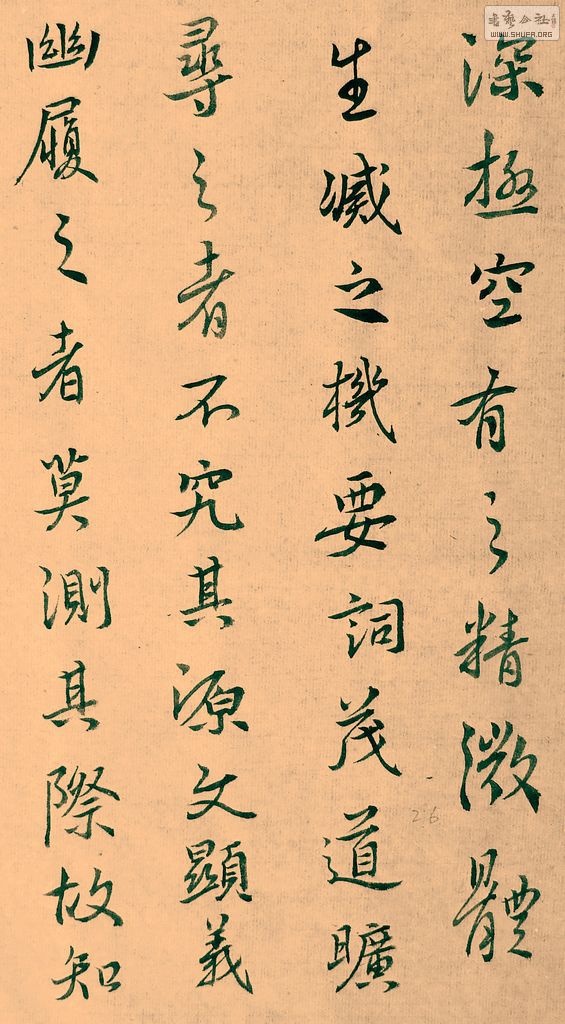 深極空有之精微體
生滅之機要詞茂道曠
尋之者不究其源文顯義
幽履之者莫測其際故知
26
WWW.SHUFA.ORG